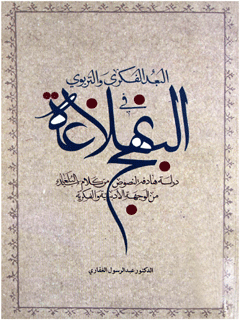 البعد الفكري والتربوي
في
نهج البلاغة
دراسة هادفة لنصوص من كلام
من الوجهة الأدبية والفكرية
الدكتور عبد الرسول الغفاري